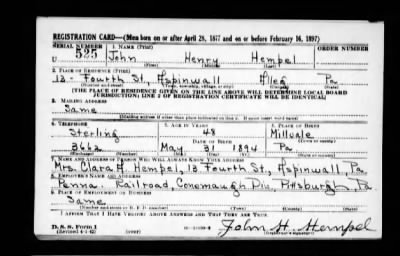 REGISTRATION CARD—(Men born on or after April 28, 1877 and on or before February 16, 1897)
SERIAL NUMBER 1. NAME (Print) ORDER NUMBER
U 525 John Henry Hempel
(First) (Middle) (Last)
2. PLACE OF RESIDENCE (Print)
13 - Fourth St., Aspinwall Alleg Pa
(Number and street) (Town, township, village, or city) (County) (State)
[THE PLACE OF RESIDENCE GIVEN ON THE LINE ABOVE WILL DETERMINE LOCAL BOARD
JURISDICTION; LINE 2 OF REGISTRATION CERTIFICATE WILL BE IDENTICAL]
3. MAILING ADDRESS
Same
[Mailing address if other than place indicated on line 2. If same insert word same]
4. TELEPHONE 5. AGE IN YEARS 6. PLACE OF BIRTH
Sterling 48 Millvale
DATE OF BIRTH
3662 May 31 1894 Pa
(Exchange) (Number) (Mo.) (Day) (Yr.) (State or country)
7. NAME AND ADDRESS OF PERSON WHO WILL ALWAYS KNOW YOUR ADDRESS
Mrs. Clara H. Hempel, 13 Fourth St., Aspinwall, Pa
8. EMPLOYER'S NAME AND ADDRESS
Penna. Railroad, Conemaugh Div, Pittsburgh Pa.
9. PLACE OF EMPLOYMENT OR BUSINESS
Same
(Number and street or R. F. D. number) (Town) (County) (State)
I AFFIRM THAT I HAVE VERIFIED ABOVE ANSWERS AND THAT THEY ARE TRUE.
D. S. S. Form 1
(Revised 4-1-42) (over) John H. Hempel
(Registrant's signature)